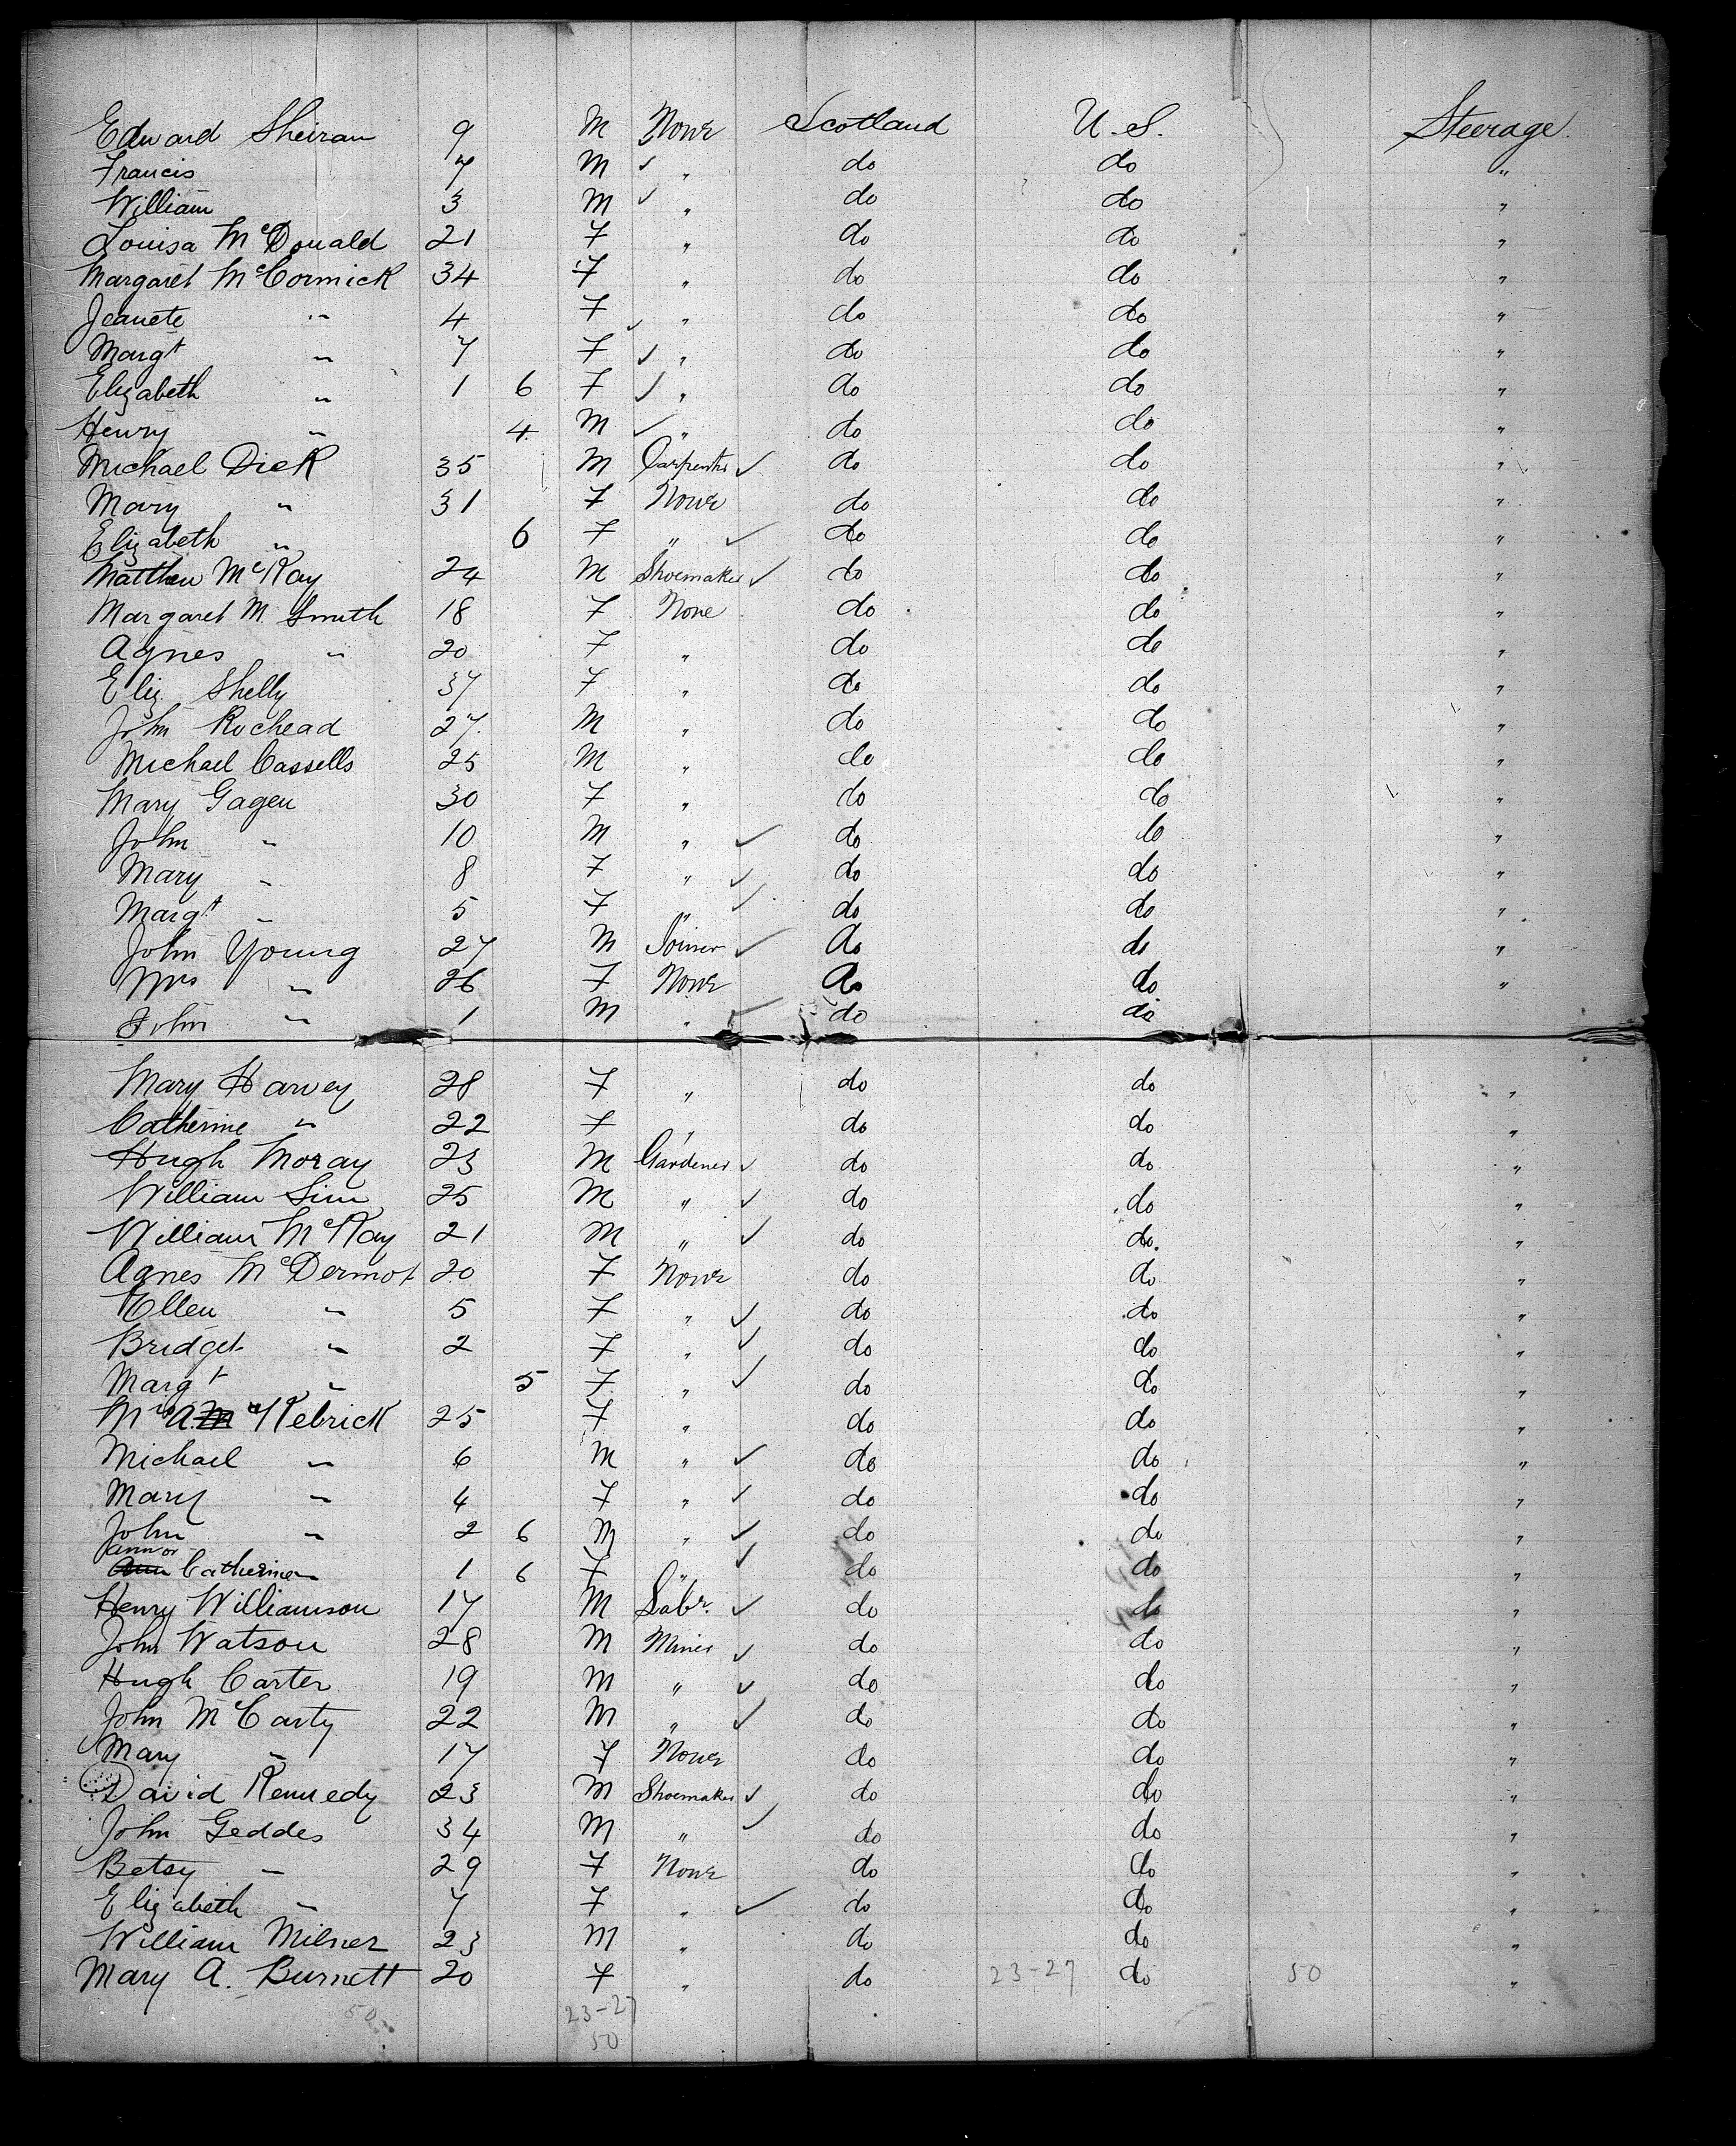 Edward Sheiran 9 M None Scotland U.S. Steerage
Francis 7 M ✓ " do do "
William 3 M ✓ " do do "
Louisa McDonald 21 F " do do "
Margaret McCormick 34 F " do do "
Jeanete " 4 F ✓ " do do "
Margt " 7 F ✓ " do do "
Elizabeth " 1 6 F ✓ " do do "
Henry " 4 M ✓ " do do "
Michael Dick 35 M Carpenter ✓ do do "
Mary " 31 F None do do "
Elizabeth " 6 F " ✓ do do "
Matthew McKay 24 M Shoemaker ✓ do do "
Margaret M Smith 18 F None do do "
Agnes " 20 F " do do "
Eliz Shelly 37 F " do do "
John Rochead 27 M " do do "
Michael Cassells 25 M " do do "
Mary Gagen 30 F " do do "
John " 10 M " ✓ do do "
Mary " 8 F " ✓ do do "
Margt " 5 F " ✓ do do "
John Young 27 M Joiner ✓ do do "
Mrs " 26 F None do do "
John " 1 M " ✓ do do
Mary Harvey 28 F " do do "
Catherine " 22 F " do do "
Hugh Moray 23 M Gardener ✓ do do "
William Sim 25 M " ✓ do do "
William McKay 21 M " ✓ do do. "
Agnes McDermot 20 F None do do "
Ellen " 5 F " ✓ do do "
Bridget " 2 F " ✓ do do "
Margt " 5 F " ✓ do do "
Mrs A. M McKebrick 25 F " do do "
Michael " 6 M " ✓ do do "
Mary " 4 F " ✓ do do "
John " 2 6 M " ✓ do do "
Ann or
Ann Catherine " 1 6 F " ✓ do do "
Henry Williamson 17 M Labr. ✓ do do "
John Watson 28 M Miner ✓ do do "
Hugh Carter 19 M " ✓ do do "
John McCarty 22 M " ✓ do do "
Mary " 17 F None do do "
David Kennedy 23 M Shoemaker ✓ do do "
John Geddes 34 M " ✓ do do "
Betsy " 29 F None do do "
Elizabeth " 7 F " ✓ do do "
William Milner 23 M " do do "
Mary A. Burnett 20 F " do 23-27 do 50 "
50 23-27
50